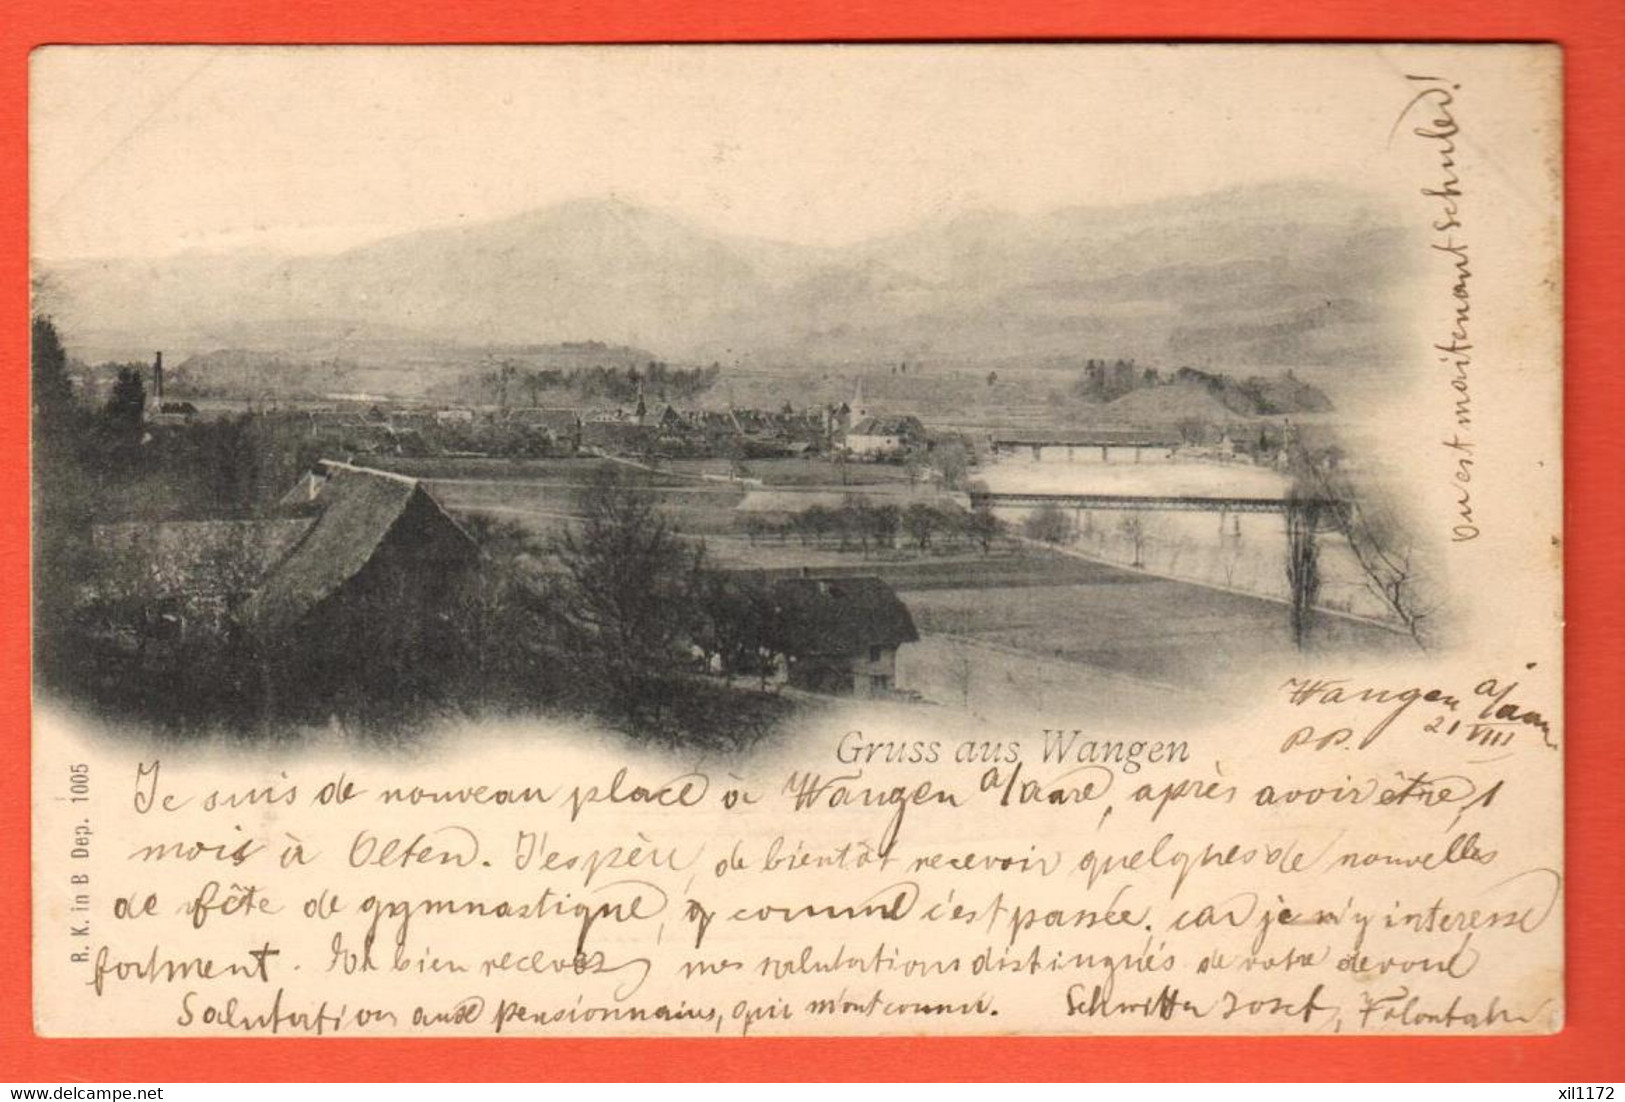 Où est maitenant Schuler!
Wangen a/aare
21 VIII
P.P.
Gruss aus Wangen
R. K. in B Dep. 1005
Je suis de nouveau place à Wangen a/aare, après avoir être, 1
mois à Olten. J'espère, de bientôt recevoir quelques de nouvelles
de fête de gymnastique, comme c'est passée, car je m'y interesse
fortment. Ich bien recevez mes salutations distingués de votre devoué
Salutation aux pensionnairs, qui m'ont connu. Schwitter Josef,
delcampe.net
xil1172